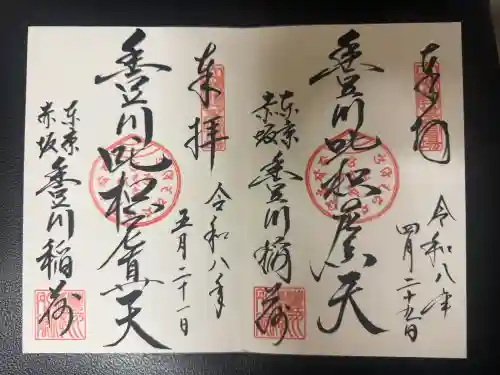 奉拝
令和八年
四月二十五日
豊川吒枳尼真天
東京
赤坂
豊川稲荷
奉拝
令和八年
五月二十一日
豊川吒枳尼真天
東京
赤坂
豊川稲荷